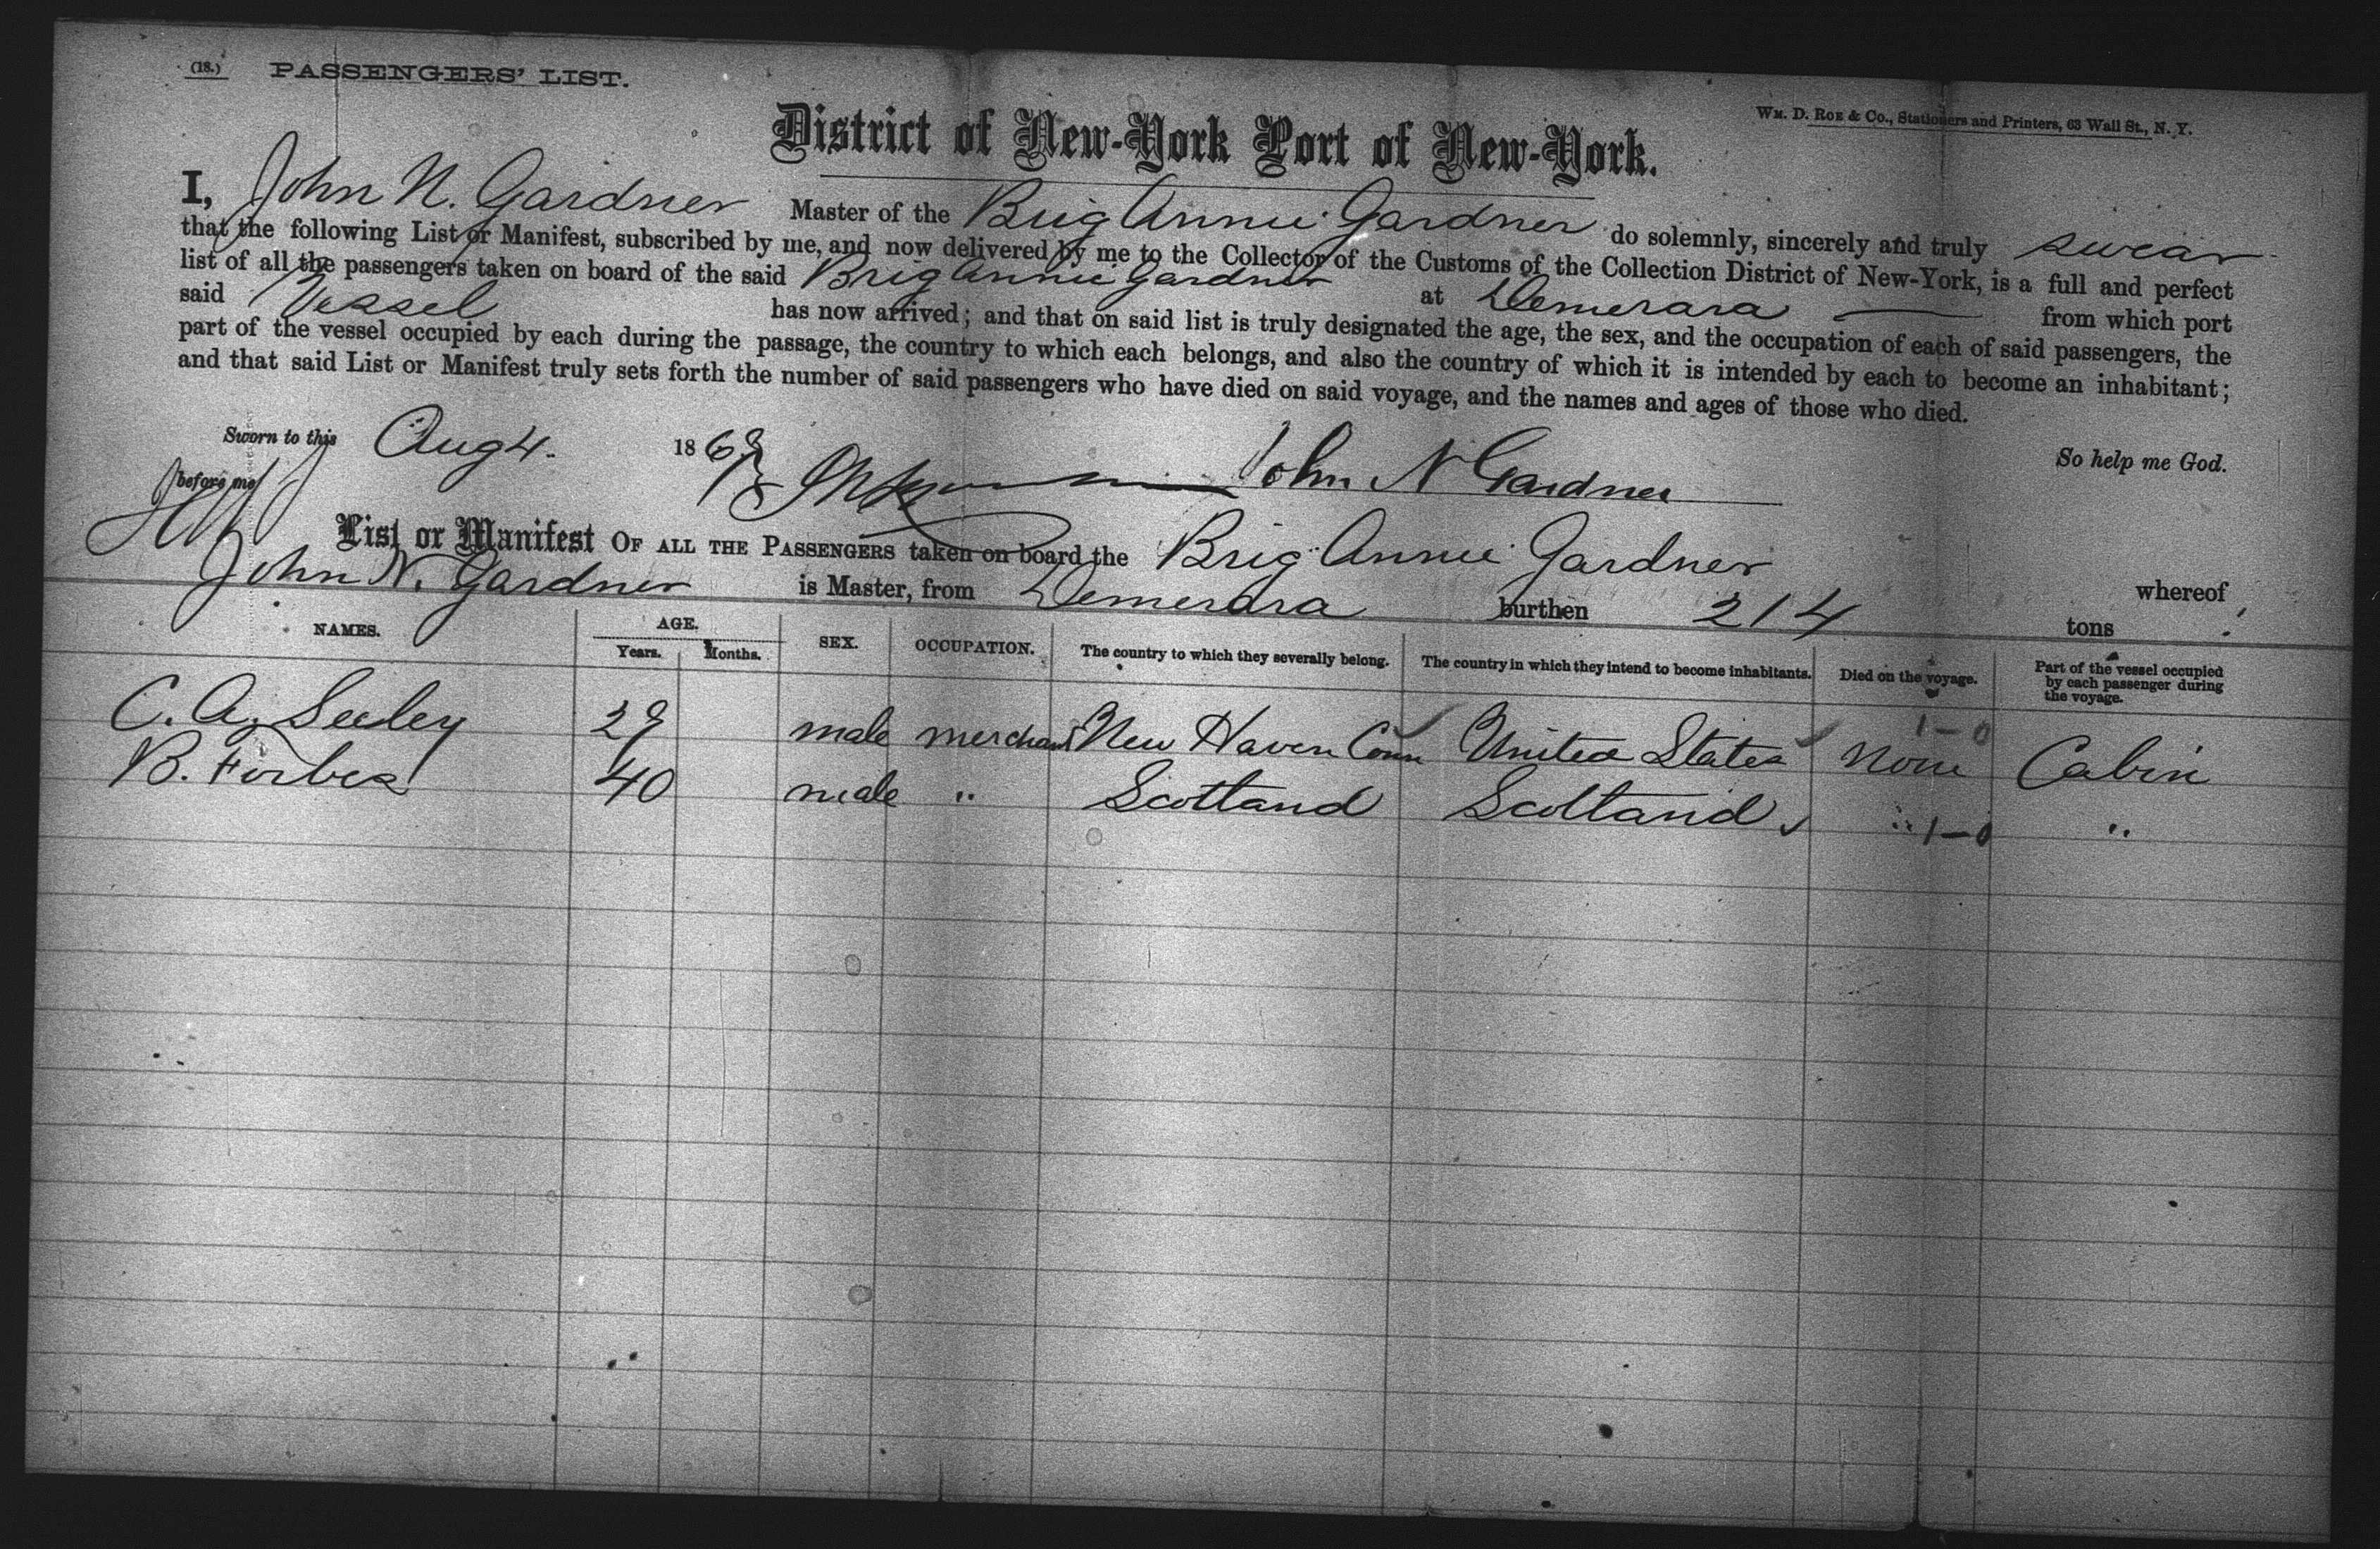 (18.) PASSENGERS' LIST.
Wm. D. Roe & Co., Stationers and Printers, 63 Wall St., N. Y.
District of New-York Port of New-York.
I, John N. Gardner Master of the Brig Annie Gardner do solemnly, sincerely and truly swear
that the following List or Manifest, subscribed by me, and now delivered by me to the Collector of the Customs of the Collection District of New-York, is a full and perfect
list of all the passengers taken on board of the said Brig Annie Gardner at Demerara from which port
said Vessel has now arrived; and that on said list is truly designated the age, the sex, and the occupation of each of said passengers, the
part of the vessel occupied by each during the passage, the country to which each belongs, and also the country of which it is intended by each to become an inhabitant;
and that said List or Manifest truly sets forth the number of said passengers who have died on said voyage, and the names and ages of those who died.
So help me God.
Sworn to this Aug 4. 1868
before me John N Gardner
List or Manifest OF ALL THE PASSENGERS taken on board the Brig Annie Gardner whereof
John N. Gardner is Master, from Demerara burthen 214 tons
NAMES. AGE. Years. Months. SEX. OCCUPATION. The country to which they severally belong. The country in which they intend to become inhabitants. Died on the voyage. Part of the vessel occupied by each passenger during the voyage.
1-0
C. A. Seeley 29 male merchant New Haven Conn United States None Cabin
B. Forbes 40 male " Scotland Scotland " 1-0 "